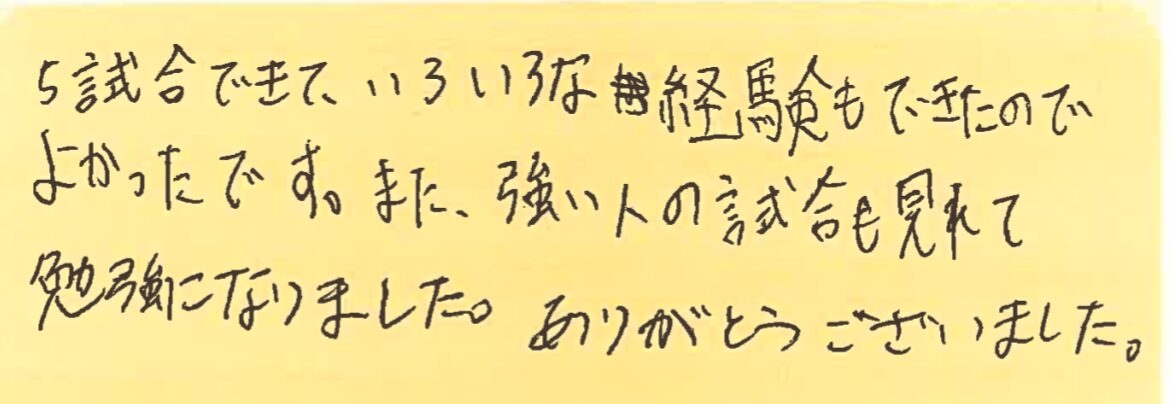 5試合できて、いろいろな経験もできたので
よかったです。また、強い人の試合も見れて
勉強になりました。ありがとうございました。